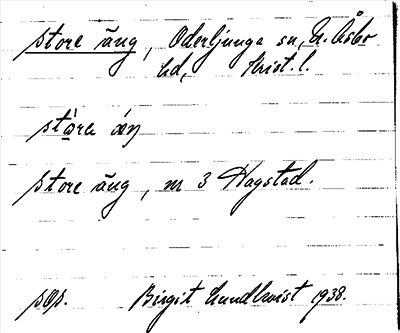 store äng, Oderljunga sn, N. Åsbo
hd, Krist. l.
stòra áŋ
store äng, m 3 Hagstad.
pop. Birgit Lundkvist 1938.